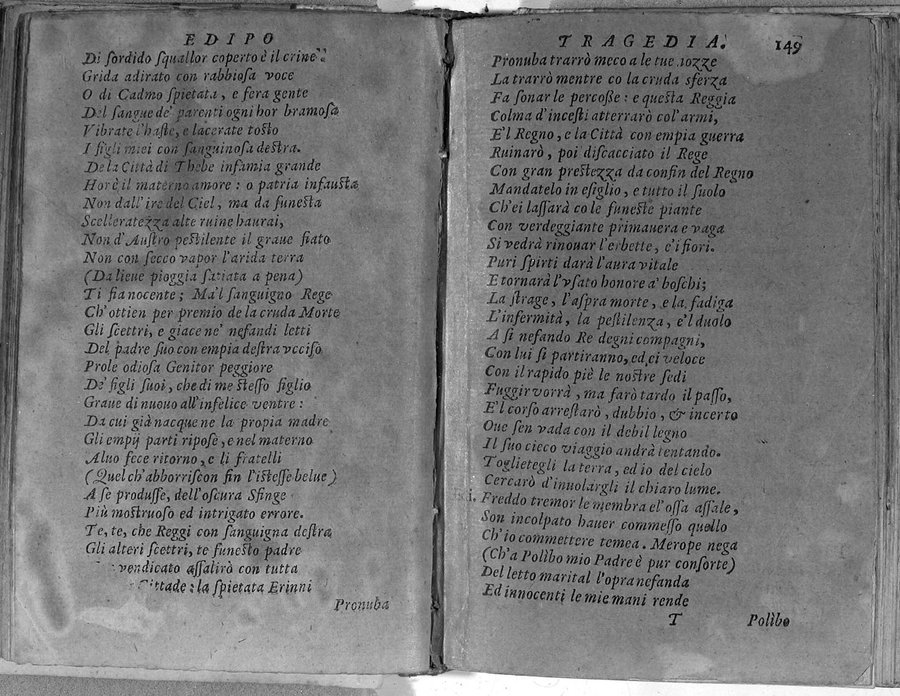 EDIPO
Di ſordido ſquallor coperto è il crine
Grida adirato con rabbioſa voce
O di Cadmo ſpietata, e fera gente
Del ſangue de' parenti ogni hor bramoſa
Vibrate l'haſte, e lacerate toſto
I figli miei con ſanguinoſa deſtra.
De la Città di Thebe infamia grande
Hor è il materno amore: o patria infauſta
Non dall'ire del Ciel, ma da funeſta
Scelleratezza alte ruine haurai,
Non d'Auſtro peſtilente il graue fiato
Non con ſecco vapor l'arida terra
(Da lieue pioggia ſatiata a pena)
Ti fia nocente; Ma'l ſanguigno Rege
Ch'ottien per premio de la cruda Morte
Gli ſcettri, e giace ne' nefandi letti
Del padre ſuo con empia deſtra vcciſo
Prole odioſa Genitor peggiore
De' figli ſuoi, che di me ſteſſo figlio
Graue di nuouo all'infelice ventre:
Da cui già nacque ne la propia madre
Gli empij parti ripoſe, e nel materno
Aluo fece ritorno, e li fratelli
(Quel ch'abborriſcon fin l'iſteſſe belue)
A ſe produſſe, dell'oſcura Sfinge
Più moſtruoſo ed intrigato errore.
Te, te, che Reggi con ſanguigna deſtra
Gli alteri ſcettri, te funeſto padre
vendicato aſſalirò con tutta
Cittade: la ſpietata Erinni
Pronuba
TRAGEDIA. 149
Pronuba trarrò meco a le tue nozze
La trarrò mentre co la cruda sferza
Fa ſonar le percoſſe: e queſta Reggia
Colma d'inceſti atterrarò col'armi,
E'l Regno, e la Città con empia guerra
Ruinarò, poi diſcacciato il Rege
Con gran preſtezza da confin del Regno
Mandatelo in eſiglio, e tutto il ſuolo
Ch'ei laſſarà co le funeſte piante
Con verdeggiante primauera e vaga
Si vedrà rinouar l'erbette, e'i fiori.
Puri ſpirti darà l'aura vitale
E tornarà l'vſato honore a' boſchi;
La ſtrage, l'aſpra morte, e la fadiga
L'infermità, la peſtilenza, e'l duolo
A ſi nefando Re degni compagni,
Con lui ſi partiranno, ed ei veloce
Con il rapido piè le noſtre ſedi
Fuggir vorrà, ma farò tardo il paſſo,
E'l corſo arreſtarò, dubbio, & incerto
Oue ſen vada con il debil legno
Il ſuo cieco viaggio andrà tentando.
Toglietegli la terra, ed io del cielo
Cercarò d'inuolargli il chiaro lume.
Freddo tremor le membra e l'oſſa aſſale,
Son incolpato hauer commeſſo quello
Ch'io commettere temea. Merope nega
(Ch'a Polìbo mio Padre è pur conſorte)
Del letto marital l'opra nefanda
Ed innocenti le mie mani rende
T Polìbo